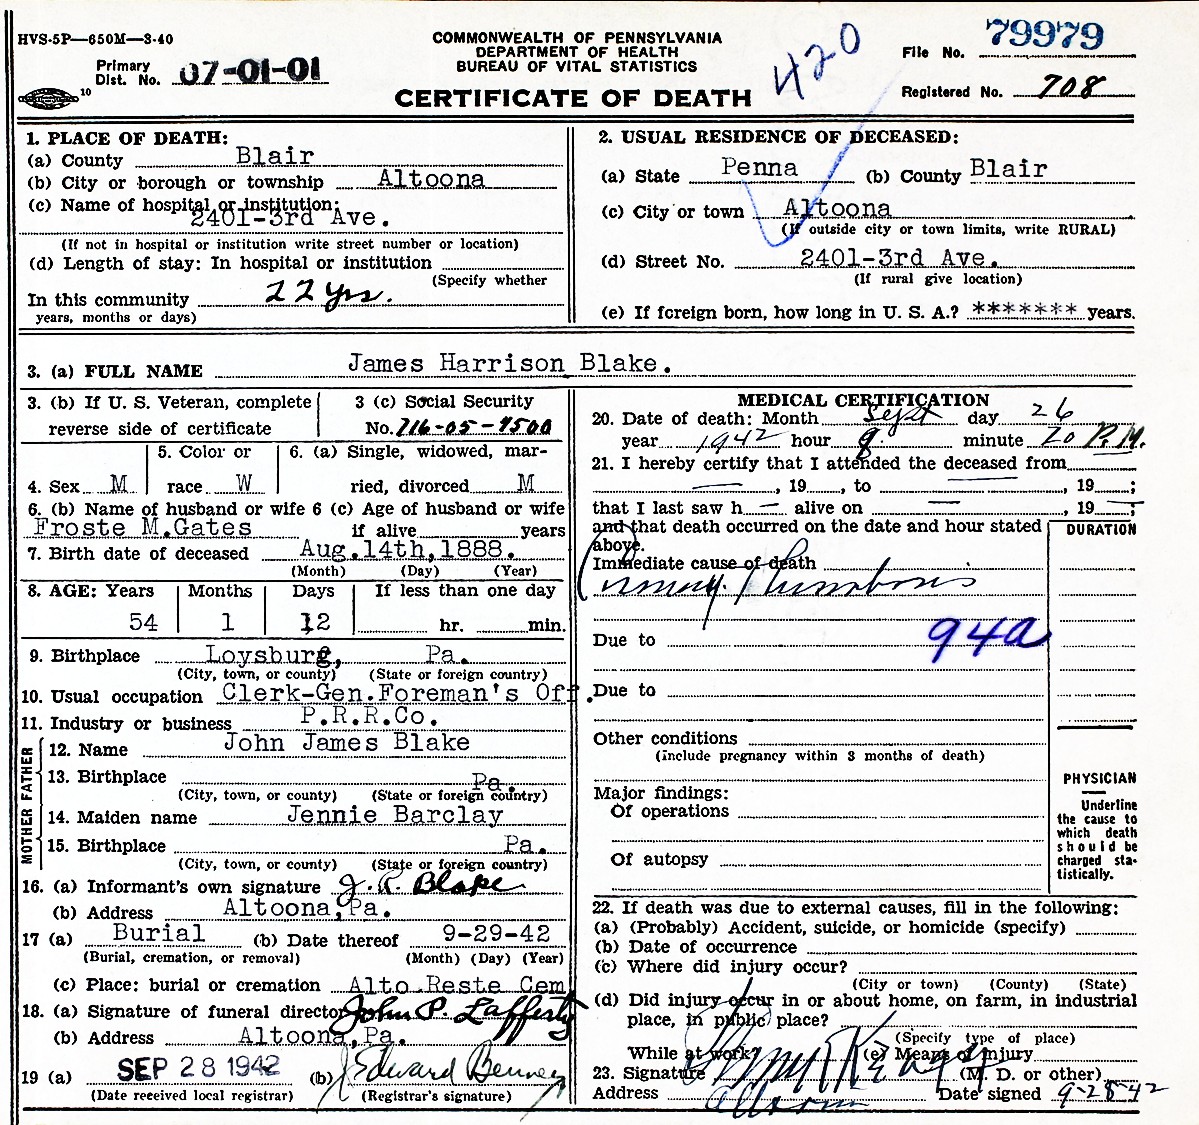 HVS-5P—650M—3-40
COMMONWEALTH OF PENNSYLVANIA
DEPARTMENT OF HEALTH
BUREAU OF VITAL STATISTICS
CERTIFICATE OF DEATH
Primary
Dist. No. 07-01-01
10
420
File No. 79979
Registered No. 708
1. PLACE OF DEATH:
(a) County Blair
(b) City or borough or township Altoona
(c) Name of hospital or institution:
2401-3rd Ave.
(If not in hospital or institution write street number or location)
(d) Length of stay: In hospital or institution
(Specify whether
In this community 22 yrs.
years, months or days)
2. USUAL RESIDENCE OF DECEASED:
(a) State Penna (b) County Blair
(c) City or town Altoona
(If outside city or town limits, write RURAL)
(d) Street No. 2401-3rd Ave.
(If rural give location)
(e) If foreign born, how long in U. S. A.? ******* years.
3. (a) FULL NAME James Harrison Blake.
3. (b) If U. S. Veteran, complete
reverse side of certificate
3 (c) Social Security
No. 716-05-9500
4. Sex M
5. Color or
race W
6. (a) Single, widowed, mar-
ried, divorced M
6. (b) Name of husband or wife
Froste M.Gates
6 (c) Age of husband or wife
if alive years
7. Birth date of deceased Aug.14th,1888.
(Month) (Day) (Year)
8. AGE: Years Months Days If less than one day
54 1 12 hr. min.
9. Birthplace Loysburg, Pa.
(City, town, or county) (State or foreign country)
10. Usual occupation Clerk-Gen.Foreman's Off.
11. Industry or business P.R.R.Co.
FATHER
12. Name John James Blake
13. Birthplace Pa.
(City, town, or county) (State or foreign country)
MOTHER
14. Maiden name Jennie Barclay
15. Birthplace Pa.
(City, town, or county) (State or foreign country)
16. (a) Informant's own signature J. R. Blake
(b) Address Altoona,Pa.
17 (a) Burial (b) Date thereof 9-29-42
(Burial, cremation, or removal) (Month) (Day) (Year)
(c) Place: burial or cremation Alto Reste Cem
18. (a) Signature of funeral director John P. Lafferty
(b) Address Altoona,Pa.
19 (a) SEP 28 1942 (b) J Edward Benney
(Date received local registrar) (Registrar's signature)
MEDICAL CERTIFICATION
20. Date of death: Month Sept day 26
year 1942 hour 8 minute 20 P.M.
21. I hereby certify that I attended the deceased from
—, 19 , to —, 19 —;
that I last saw h — alive on —, 19 —;
and that death occurred on the date and hour stated
above.
DURATION
Immediate cause of death
Coronary Thrombosis
Due to 94a
Due to
Other conditions
(Include pregnancy within 3 months of death)
Major findings:
Of operations
Of autopsy
PHYSICIAN
Underline
the cause to
which death
should be
charged sta-
tistically.
22. If death was due to external causes, fill in the following:
(a) (Probably) Accident, suicide, or homicide (specify)
(b) Date of occurrence
(c) Where did injury occur?
(City or town) (County) (State)
(d) Did injury occur in or about home, on farm, in industrial
place, in public place?
(Specify type of place)
While at work? (e) Means of injury
23. Signature (M. D. or other)
Address Altoona Date signed 9-28-42